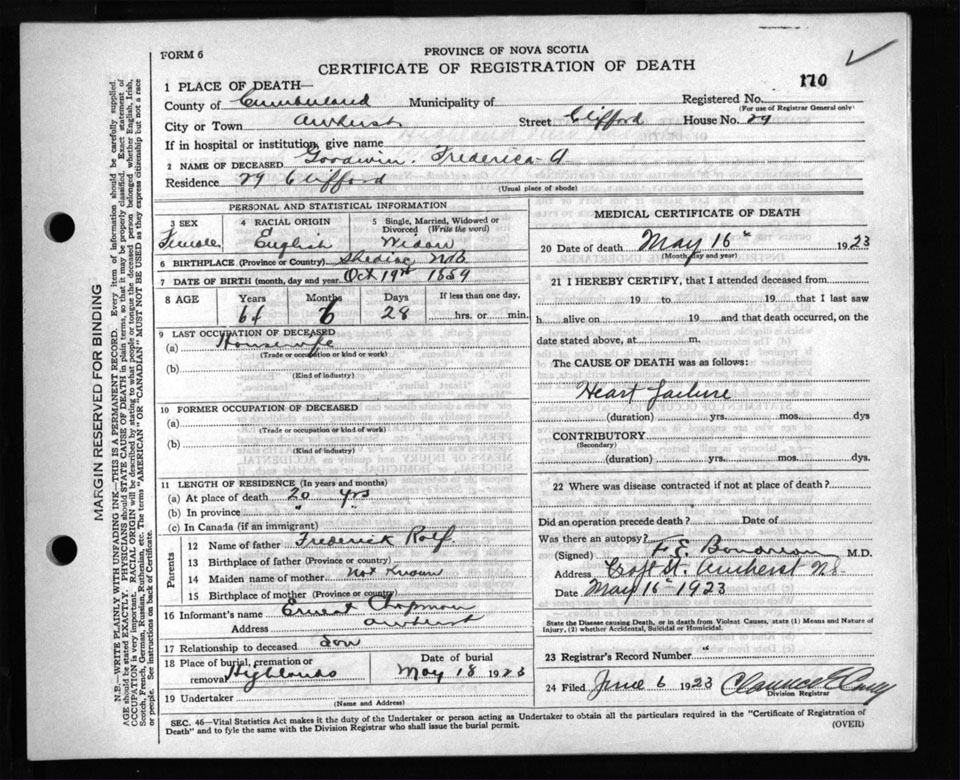 FORM 6
PROVINCE OF NOVA SCOTIA
CERTIFICATE OF REGISTRATION OF DEATH
110
1 PLACE OF DEATH—
County of Cumberland Municipality of Registered No.
(For use of Registrar General only)
City or Town Amherst Street Clifford House No. 29
If in hospital or institution, give name
2 NAME OF DECEASED Goodwin. Frederica A
Residence 29 Clifford
(Usual place of abode)
PERSONAL AND STATISTICAL INFORMATION
3 SEX 4 RACIAL ORIGIN 5 Single, Married, Widowed or Divorced (Write the word)
Female English Widow
6 BIRTHPLACE (Province or Country) Shediac NB
7 DATE OF BIRTH (month, day and year) Oct 19 1859
8 AGE Years Months Days If less than one day,
6 28 hrs. or min.
9 LAST OCCUPATION OF DECEASED
(a) Housewife
(Trade or occupation or kind or work)
(b)
(Kind of industry)
10 FORMER OCCUPATION OF DECEASED
(a)
(Trade or occupation or kind or work)
(b)
(Kind of industry)
11 LENGTH OF RESIDENCE (In years and months)
(a) At place of death 20 yrs
(b) In province " "
(c) In Canada (if an immigrant)
Parents
12 Name of father Frederick Rolf.
13 Birthplace of father (Province or country)
14 Maiden name of mother Not Known
15 Birthplace of mother (Province or country)
16 Informant's name Ernest Chapman
Address Amherst
17 Relationship to deceased Son
18 Place of burial, cremation or removal Highlands
Date of burial May 18 1923
19 Undertaker
(Name and Address)
MEDICAL CERTIFICATE OF DEATH
20 Date of death May 16 1923
(Month, day and year)
21 I HEREBY CERTIFY, that I attended deceased from
19 to 19 that I last saw
h alive on 19 and that death occurred, on the
date stated above, at m.
The CAUSE OF DEATH was as follows:
Heart failure
(duration) yrs. mos. dys
CONTRIBUTORY
(Secondary)
(duration) yrs. mos. dys.
22 Where was disease contracted if not at place of death?
Did an operation precede death? Date of
Was there an autopsy?
(Signed) F. E. M.D.
Address Croft St. Amherst NS
Date May 16 1923
State the Disease causing Death, or in death from Violent Causes, state (1) Means and Nature of Injury, (2) whether Accidental, Suicidal or Homicidal.
23 Registrar's Record Number "
24 Filed June 6 1923 Clarence
Division Registrar
SEC. 46—Vital Statistics Act makes it the duty of the Undertaker or person acting as Undertaker to obtain all the particulars required in the "Certificate of Registration of
Death" and to fyle the same with the Division Registrar who shall issue the burial permit.
(OVER)
MARGIN RESERVED FOR BINDING
N.B.—WRITE PLAINLY WITH UNFADING INK—THIS IS A PERMANENT RECORD. Every item of information should be carefully supplied.
AGE should be stated EXACTLY. PHYSICIANS should STATE CAUSE OF DEATH in plain terms, so that it may be properly classified. Exact statement of
OCCUPATION is very important. RACIAL ORIGIN will be described by stating to what people or tongue the deceased person belonged whether English, Irish,
Scotch, French, German, Russian, Ruthenian, etc. The terms "AMERICAN" OR "CANADIAN" MUST NOT BE USED as they express citizenship but not a race
or people. See instructions on back of Certificate.